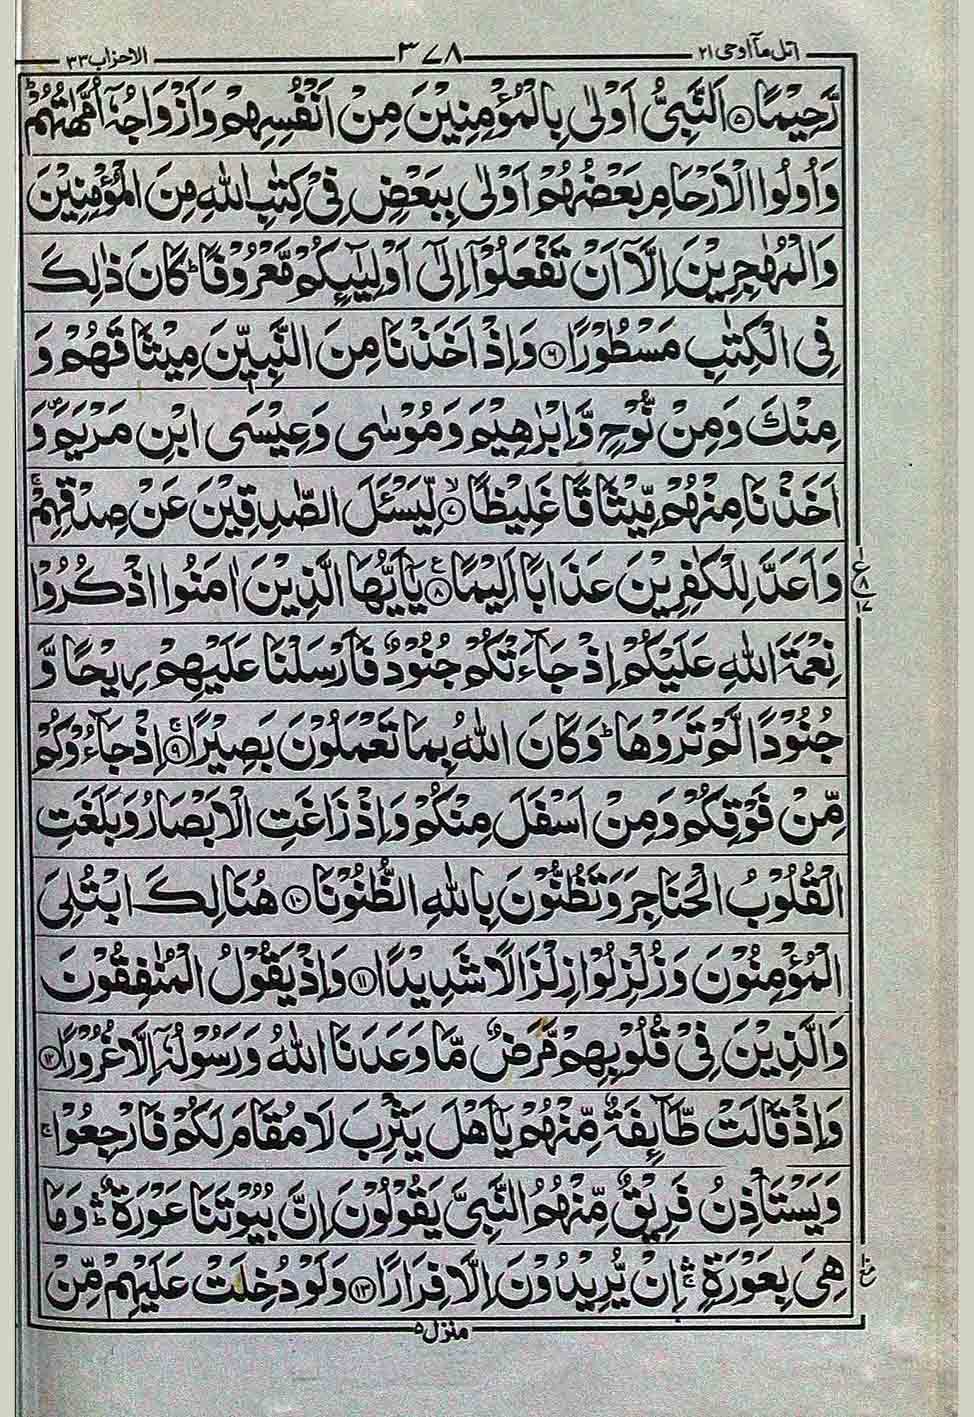 اتل مآ اوحی ۲۱ ۳۷۸ الاحزاب ۳۳
رَّحِیْمًا ۝۵ اَلنَّبِیُّ اَوْلٰی بِالْمُؤْمِنِیْنَ مِنْ اَنْفُسِهِمْ وَ اَزْوَاجُهٗۤ اُمَّهٰتُهُمْ ؕ
وَ اُولُوا الْاَرْحَامِ بَعْضُهُمْ اَوْلٰی بِبَعْضٍ فِیْ كِتٰبِ اللّٰهِ مِنَ الْمُؤْمِنِیْنَ
وَ الْمُهٰجِرِیْنَ اِلَّاۤ اَنْ تَفْعَلُوْۤا اِلٰۤی اَوْلِیٰٓىِٕكُمْ مَّعْرُوْفًا ؕ كَانَ ذٰلِكَ
فِی الْكِتٰبِ مَسْطُوْرًا ۝۶ وَ اِذْ اَخَذْنَا مِنَ النَّبِیّٖنَ مِیْثَاقَهُمْ وَ
مِنْكَ وَ مِنْ نُّوْحٍ وَّ اِبْرٰهِیْمَ وَ مُوْسٰی وَ عِیْسَی ابْنِ مَرْیَمَ ۪ وَ
اَخَذْنَا مِنْهُمْ مِّیْثَاقًا غَلِیْظًا ۝۷ۙ لِّیَسْـَٔلَ الصّٰدِقِیْنَ عَنْ صِدْقِهِمْ ۚ
وَ اَعَدَّ لِلْكٰفِرِیْنَ عَذَابًا اَلِیْمًا ۝۸ع یٰۤاَیُّهَا الَّذِیْنَ اٰمَنُوا اذْكُرُوْا
ع ۸ ۱۷
نِعْمَةَ اللّٰهِ عَلَیْكُمْ اِذْ جَآءَتْكُمْ جُنُوْدٌ فَاَرْسَلْنَا عَلَیْهِمْ رِیْحًا وَّ
جُنُوْدًا لَّمْ تَرَوْهَا ؕ وَ كَانَ اللّٰهُ بِمَا تَعْمَلُوْنَ بَصِیْرًا ۝۹ۚ اِذْ جَآءُوْكُمْ
مِّنْ فَوْقِكُمْ وَ مِنْ اَسْفَلَ مِنْكُمْ وَ اِذْ زَاغَتِ الْاَبْصَارُ وَ بَلَغَتِ
الْقُلُوْبُ الْحَنَاجِرَ وَ تَظُنُّوْنَ بِاللّٰهِ الظُّنُوْنَا ۝۱۰ هُنَالِكَ ابْتُلِیَ
الْمُؤْمِنُوْنَ وَ زُلْزِلُوْا زِلْزَالًا شَدِیْدًا ۝۱۱ وَ اِذْ یَقُوْلُ الْمُنٰفِقُوْنَ
وَ الَّذِیْنَ فِیْ قُلُوْبِهِمْ مَّرَضٌ مَّا وَعَدَنَا اللّٰهُ وَ رَسُوْلُهٗۤ اِلَّا غُرُوْرًا ۝۱۲
وَ اِذْ قَالَتْ طَّآىِٕفَةٌ مِّنْهُمْ یٰۤاَهْلَ یَثْرِبَ لَا مُقَامَ لَكُمْ فَارْجِعُوْا ۚ
وَ یَسْتَاْذِنُ فَرِیْقٌ مِّنْهُمُ النَّبِیَّ یَقُوْلُوْنَ اِنَّ بُیُوْتَنَا عَوْرَةٌ ۛؕ وَ مَا
هِیَ بِعَوْرَةٍ ۛۚ اِنْ یُّرِیْدُوْنَ اِلَّا فِرَارًا ۝۱۳ وَ لَوْ دُخِلَتْ عَلَیْهِمْ مِّنْ
منزل ۵